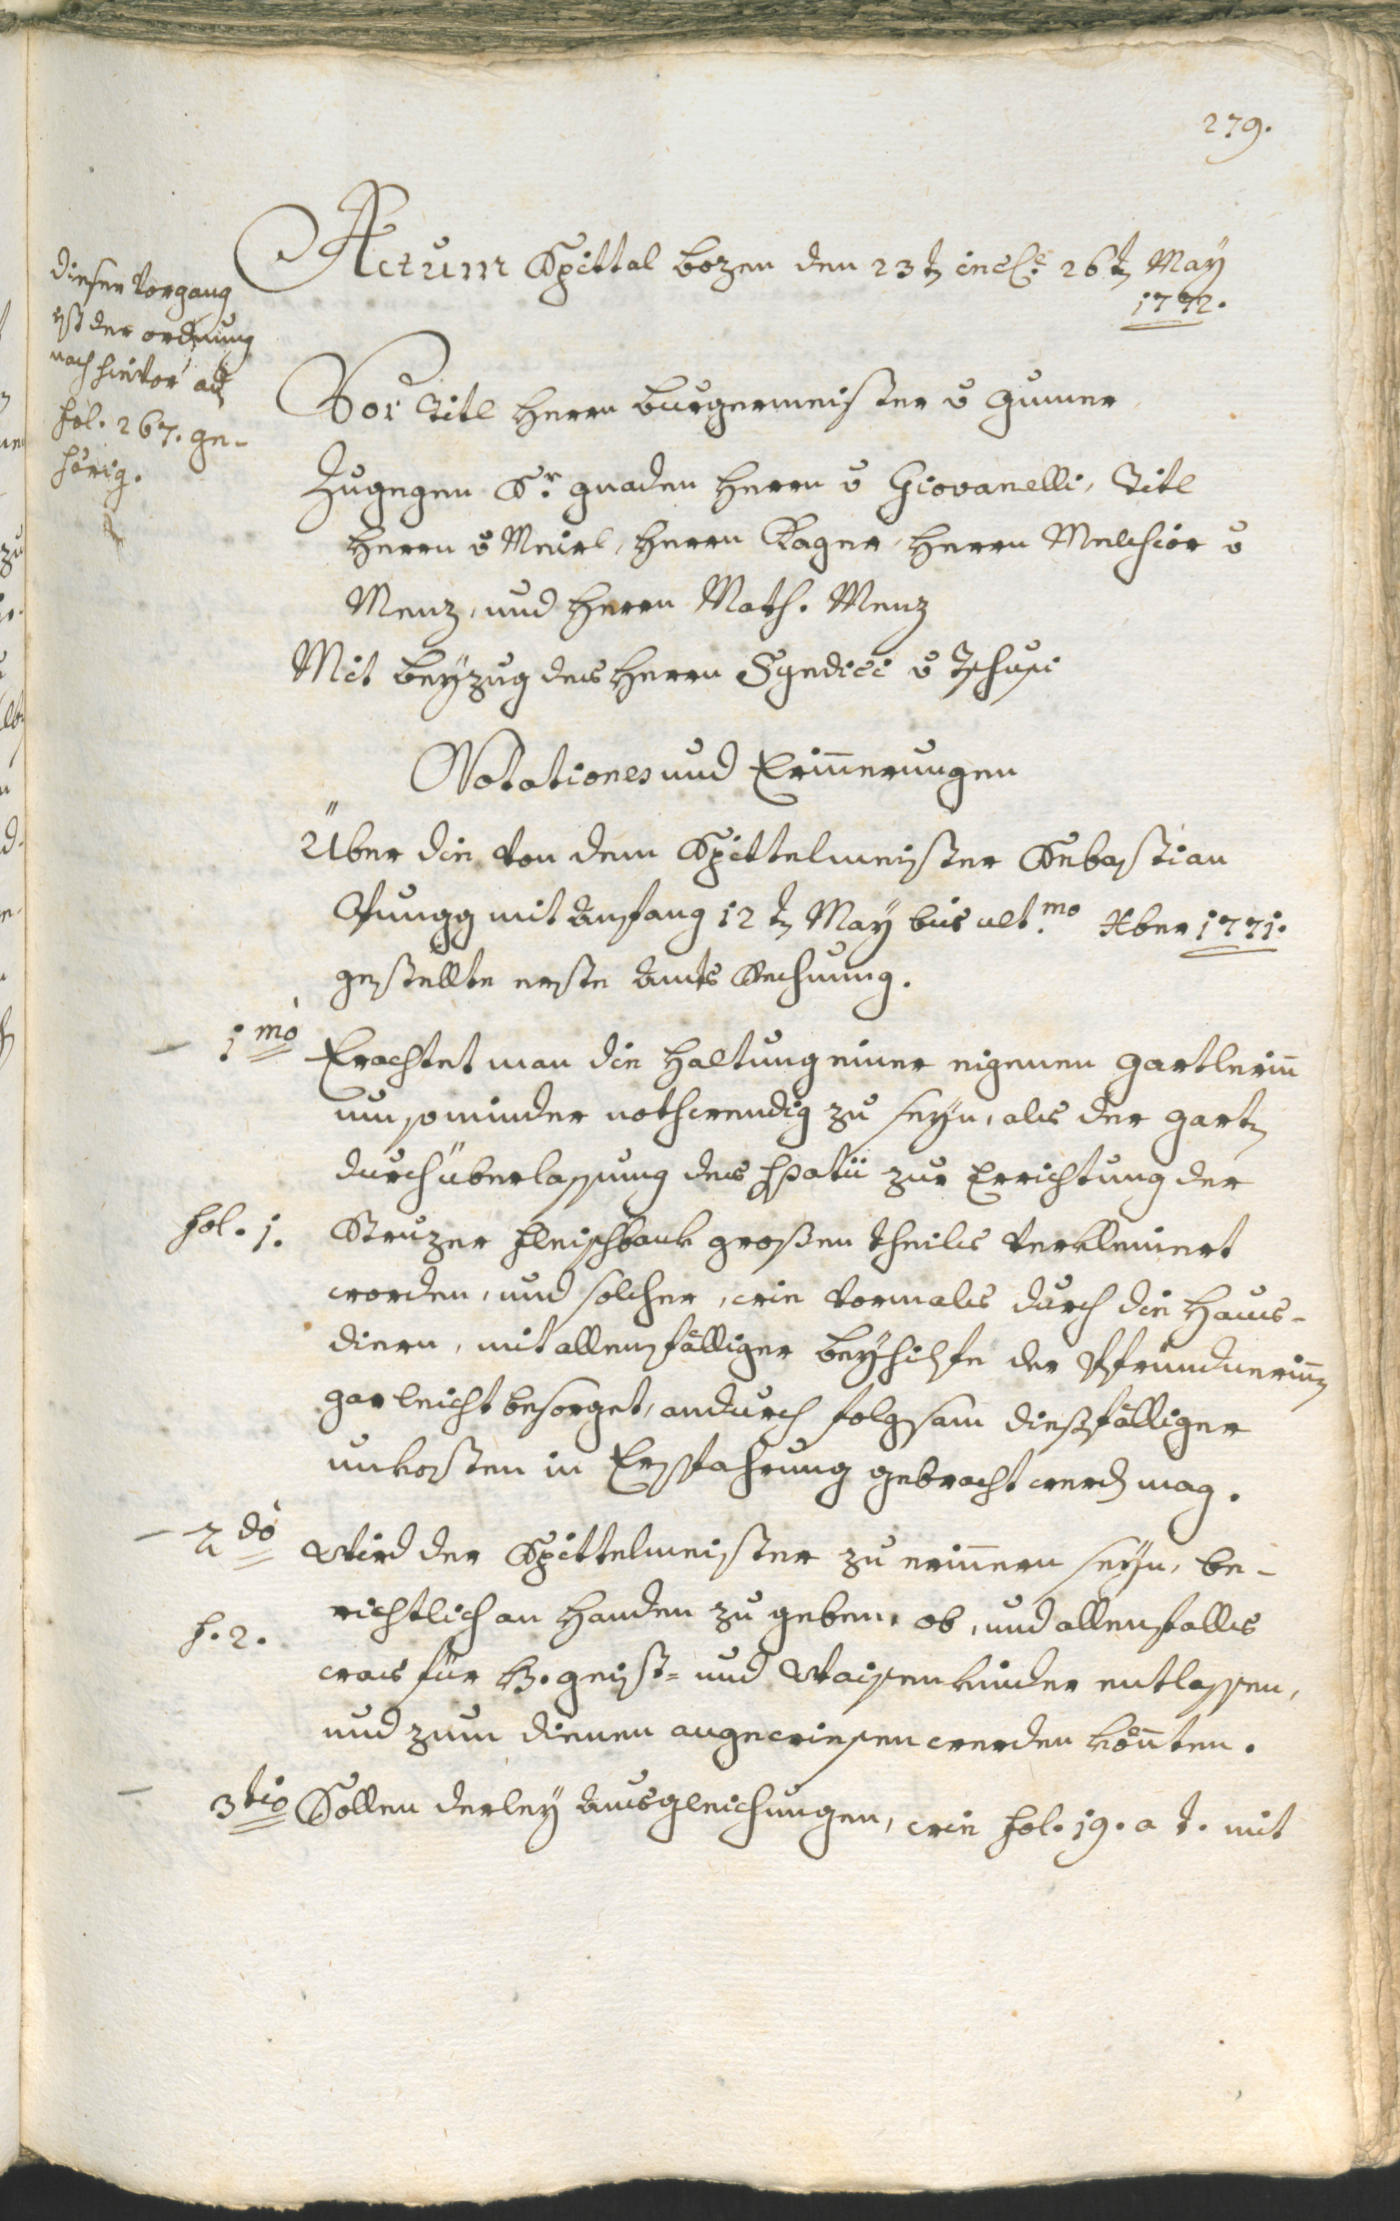 279.
dieser Vorgang
ist der ordnung
nach hievor auf
fol. 267. ge-
hörig.
Actum Spittal bozen den 23t incl: 26t May
1772.
Vor Titl Herrn burgermeister v gumer
Zugegen Sr gnaden Herrn v Giovanelli, Titl
Herrn v Meirl, Herrn Kager, Herrn Melchior v
Menz, und Herrn Math. Menz
Mit beyzug des Herrn Syndici v Tschusi
Notationes und Erinnerungen
Über die von dem Spittelmeister Sebastian
Pfungg mit Anfang 12t May bis ult.mo Xber 1771.
gestellte erste Ambts Rechnung.
1mo Erachtet man die Haltung einer eigenen gartlerin
um so minder nothwendig zu seyn, als der gartn
durch überlassung des Spatii zur Errichtung der
fol. 1. Struzer fleischbank großen theils verkleinert
worden, und solcher, wie vormals durch die Haus-
diern, mit allenfälliger beyhilfe der Pfründnerinn
gar leicht besorget, andurch folgsam dießfälliger
unkosten in Ersparung gebracht werdn mag.
2do Wird der Spittelmeister zu erinnern seyn, be-
richtlich an Handen zu geben, ob, und allenfalls
f. 2. was für H. geist- und Waisenkinder entlassen,
und zum dienen angewiesen werden könten.
3tio Sollen derley Ausgleichungen, wie fol. 19. a t. mit